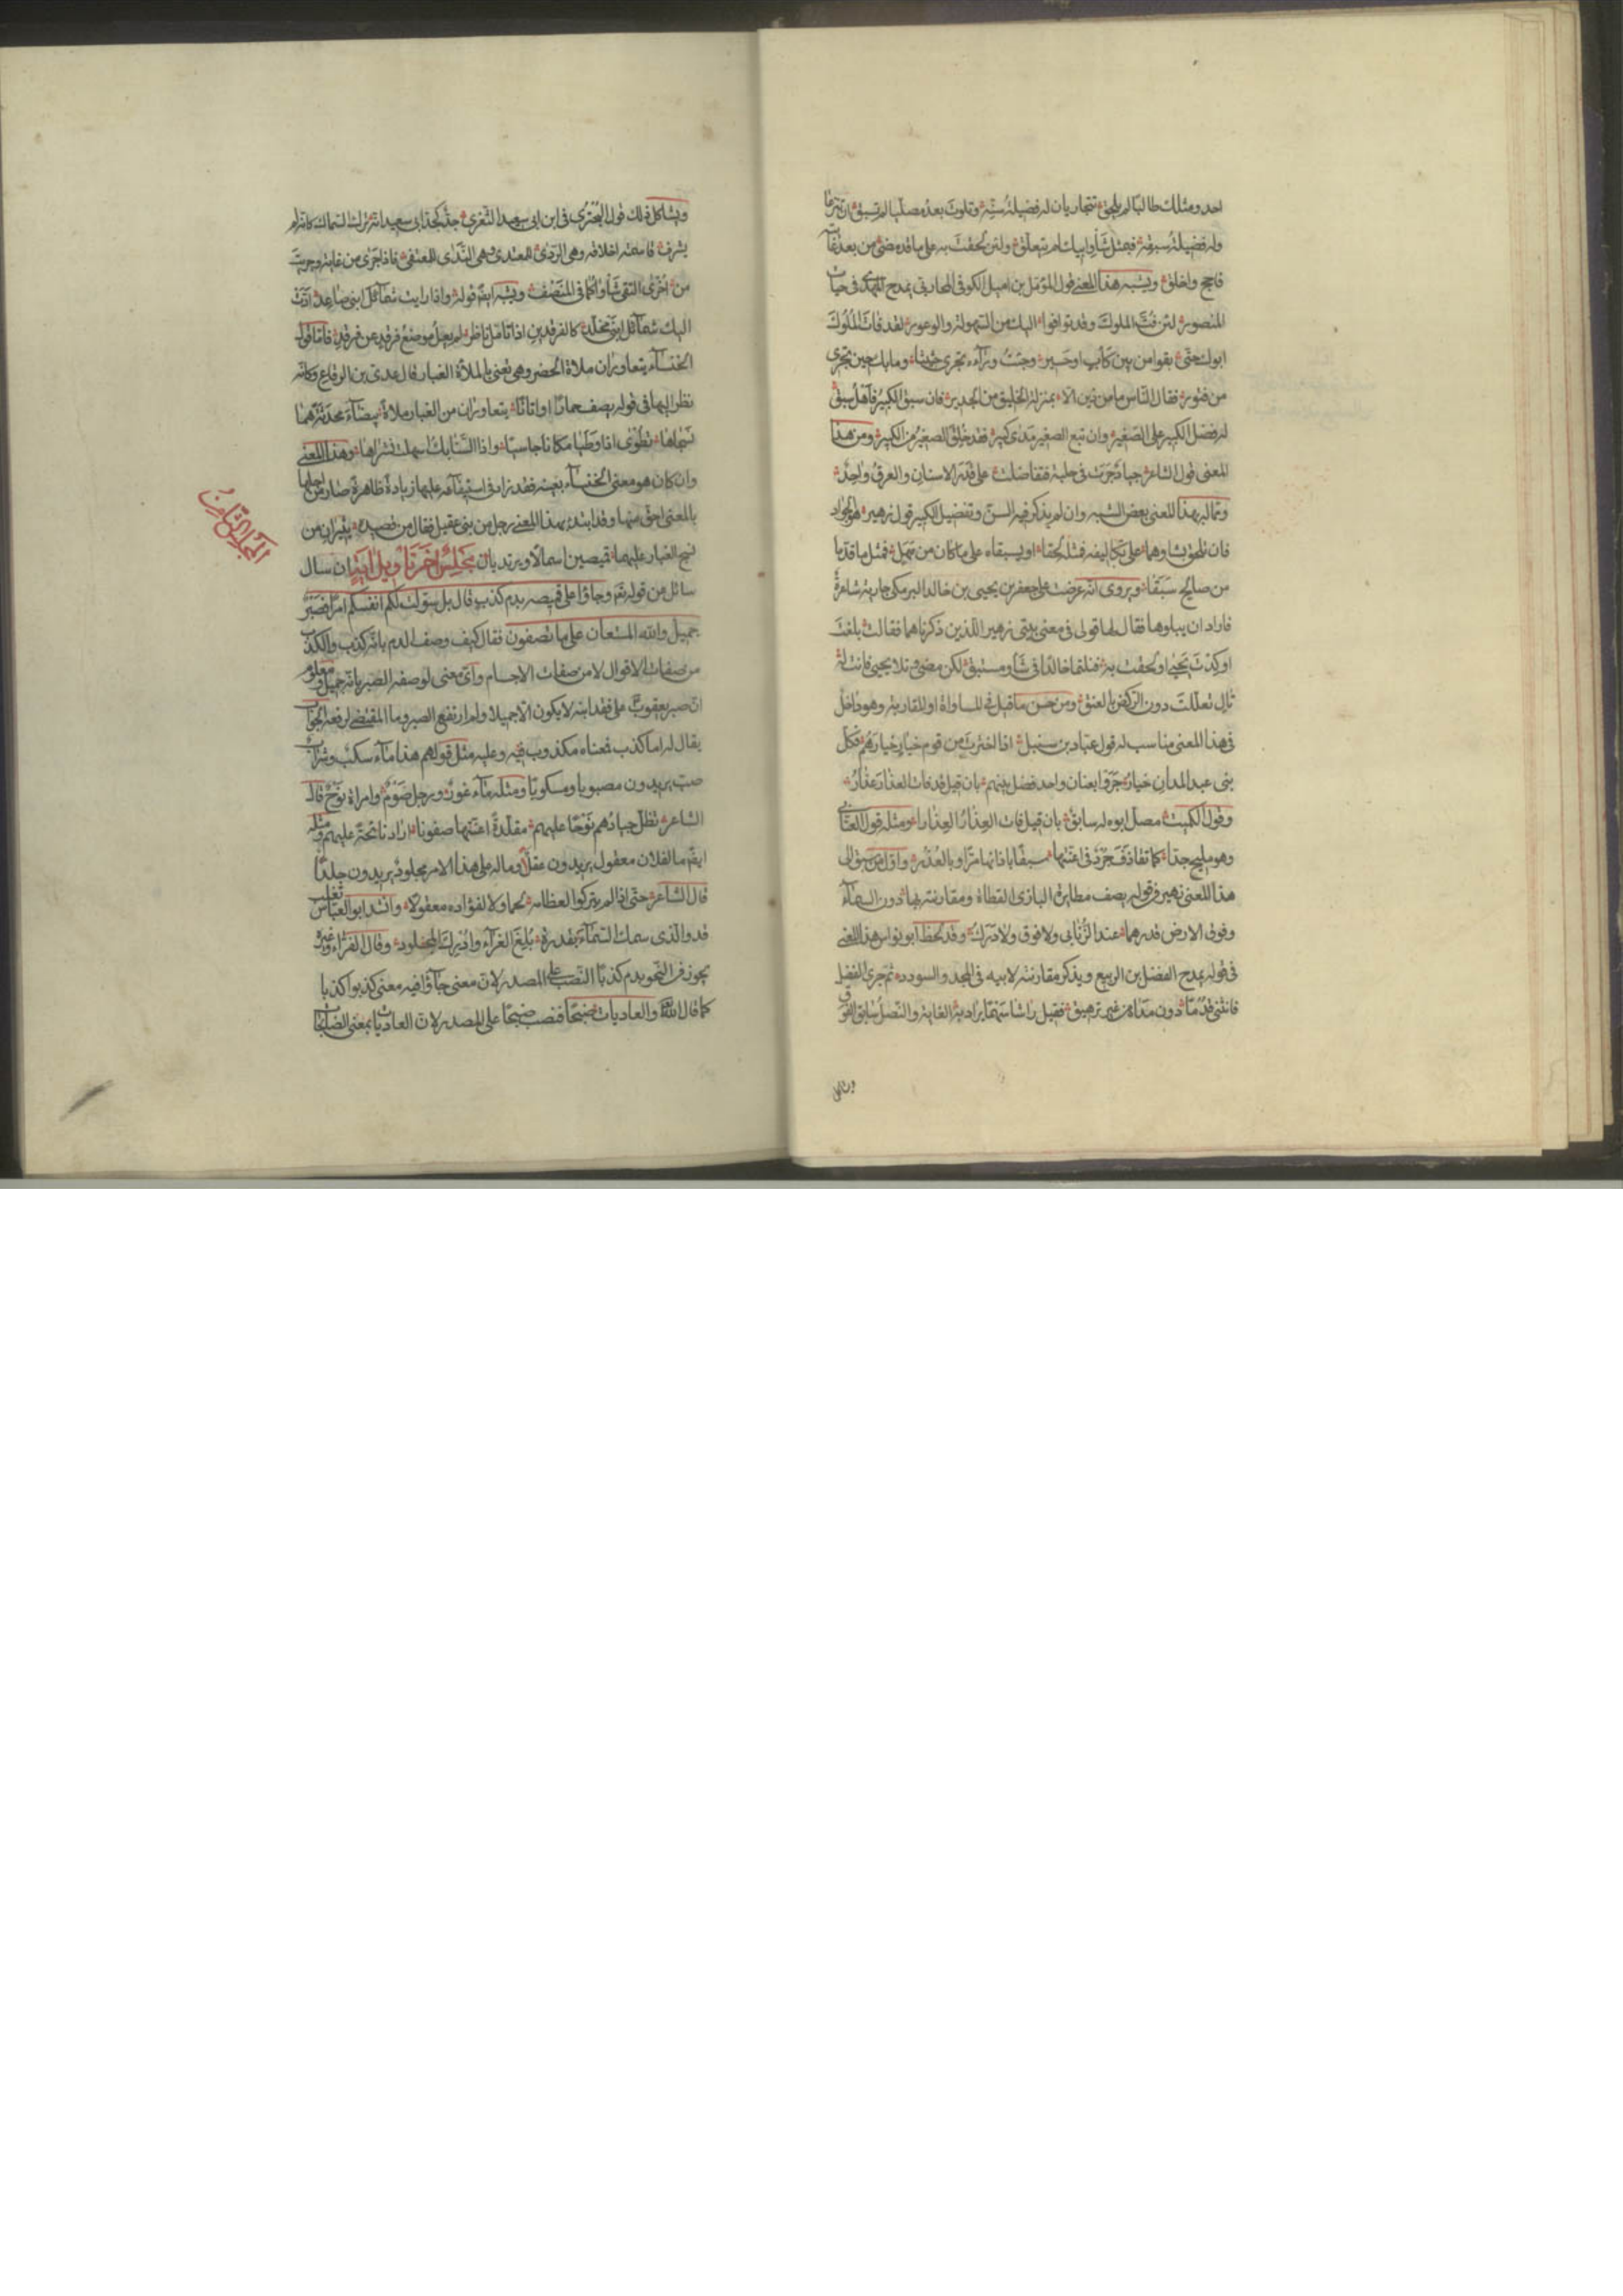 احد ومثلك طالبا لم يلحق تتجاريان له فضيلة سنه وتلوت بعده مصليا لم تسبق ان تنزعا
وله فضيلة سبقه فبمثل شأو ابيك لم يتعلق ولئن لحقت به على ما قد مضى من بعد غاية
فاحج واخلق ويشبه هذا المعنى قول المؤمل بن اميل الكوفى المحاربى يمدح المهدى فى حياة
المنصور لئن فت الملوك وقد توافوا اليك من السهولة والوعور لقد فات الملوك
ابوك حتى بقوا من بين كاب او حسير وجئت ورآءه تجرى حثيثا وما بك حين تجرى
من فتور فقال الناس ما من ذين الا بمنزلة الخليق من الجدير فان سبق الكبير فاهل سبق
له فضل الكبير على الصغير وان تبع الصغير مدى كبير فقد خلق الصغير من الكبير ومن هذا
المعنى قول الشاعر جياد جرت فى حلبة فتفاضلت على قدر الاسنان والعرق واحد
ومما له بهذا المعنى بعض الشبه وان لم يذكر فيه السن وتفضيل الكبير قول زهير هو الجواد
فان يلحق بشاوهما على تكاليفه فمثله لحقا او يسبقاه على ما كان من مهل فمثل ما قدما
من صالح سبقا ويروى انه عرضت على جعفر بن يحيى بن خالد البرمكى جارية شاعرة
فاراد ان يبلوها فقال لها قولى فى معنى بيتى زهير اللذين ذكرناهما فقالت بلغت
او كدت يحيى او لحقت به فنلتما خالدا فى شأو مستبق لكن مضى وتلا يحيى فانت له
تال تعللت دون الركض بالعنق ومن حسن ما قيل فى المساواة او المقاربة وهو داخل
فى هذا المعنى مناسب له قول عباد بن سنبل اذا اخترت من قوم خيار خيارهم فكل
بنى عبد المدان خيار جروا بعنان واحد فضل بينهم بان قيل قد فات العذار عذار
وقول الكميت مصل ابوه له سابق بان قيل فات العذار العذارا ومثله قول العتابى
وهو مليح جدا كما تقاذف جرد فى اعنتها سبقا باذانها مرا وبالعذر واول من سبق الى
هذا المعنى زهير فى قوله يصف مطايرة البازى القطاة ومقاربته بها دون السمآء
وفوق الارض قدرهما عند الذنابى ولا فوق ولا درك وقد لحظ ابو نواس هذا المعنى
فى قوله يمدح الفضل بن الربيع ويذكر مقاربته لابيه فى المجد والسودد ثم جرى الفضل
فانثنى قدما دون مداه من غير ترهيق فقيل راشا سهما يراد به الغاية والنصل سابق الفوق
ويشاكل
ويشاكل ذلك قول البحترى فى ابن ابى سعيد الثغرى جد كجد ابى سعيد انه ترك السماك كانه لم
يشرف قاسمته اخلاقه وهى الردى للمعتدى وهى الندى للمعتفى فاذا جرى من غاية وجريت
من اخرى التقى شأواكما فى المنصف ويشبه ايضا قوله واذا رايت شمآئل ابنى صاعد ادت
اليك شمآئل ابنى مخلد كالفرقدين اذا تامل ناظر لم يعل موضع فرقد عن فرقد فاما قول
الخنسآء يتعاوران ملاة الحضر وهى تعنى بالملاة الغبار فقال عدى بن الرقاع وكانه
نظر اليها فى قوله يصف حمارا واتانا يتعاوران من الغبار ملاة بيضآء محدثة هما
نسجاها تطوى اذا وطيا مكانا جاسيا واذا السنابك اسهلت نشراها وهذا المعنى
وان كان هو معنى الخنسآء بعينه فقد زاد فى استيفآئه عليها زيادة ظاهرة صار من اجلها
بالمعنى احق منها وقد ابتدء بهذا المعنى رجل من بنى عقيل فقال من قصيده يثيران من
نسج الغبار عليهما قميصين اسمالا ويرتديان مجلس اخر تاويل اية ان سال
المجلس الثامن
سائل عن قوله تع وجاؤا على قميصه بدم كذب قال بل سولت لكم انفسكم امرا فصبر
جميل والله المستعان على ما تصفون فقال كيف وصف الدم بانه كذب والكذب
من صفات الاقوال لا من صفات الاجسام واى معنى لوصفه الصبر بانه جميل ومعلوم
ان صبر يعقوب على فقد ابنه لا يكون الا جميلا ولم ارتفع الصبر وما المقتضى لرفعه الجواب
يقال له اما كذب فمعناه مكذوب فيه وعليه مثل قولهم هذا مآء سكب وشراب
صب يريدون مصبوبا ومسكوبا ومثله مآء غور ورجل صوم وامراة نوح قال
الشاعر تظل جيادهم نوحا عليهم مقلدة اعنتها صفونا اراد نائحة عليهم ومثله
ايضا ما لفلان معقول يريدون عقلا وماله على هذا الامر مجلود يريدون جلدا
قال الشاعر حتى اذا لم يتركوا لعظامه لحما ولا لفؤاده معقولا وانشد ابو العباس ثعلب
قد والذى سمك السمآء بقدرة بلغ العزآء وادرك المجلود وقال الفراء وغيره
يجوز فى النحو بدم كذبا النصب على المصدر لان معنى جآؤا فيه معنى كذبوا كذبا
كما قال الله والعاديات ضبحا فنصب ضبحا على المصدر لان العاديات بمعنى الضابحات